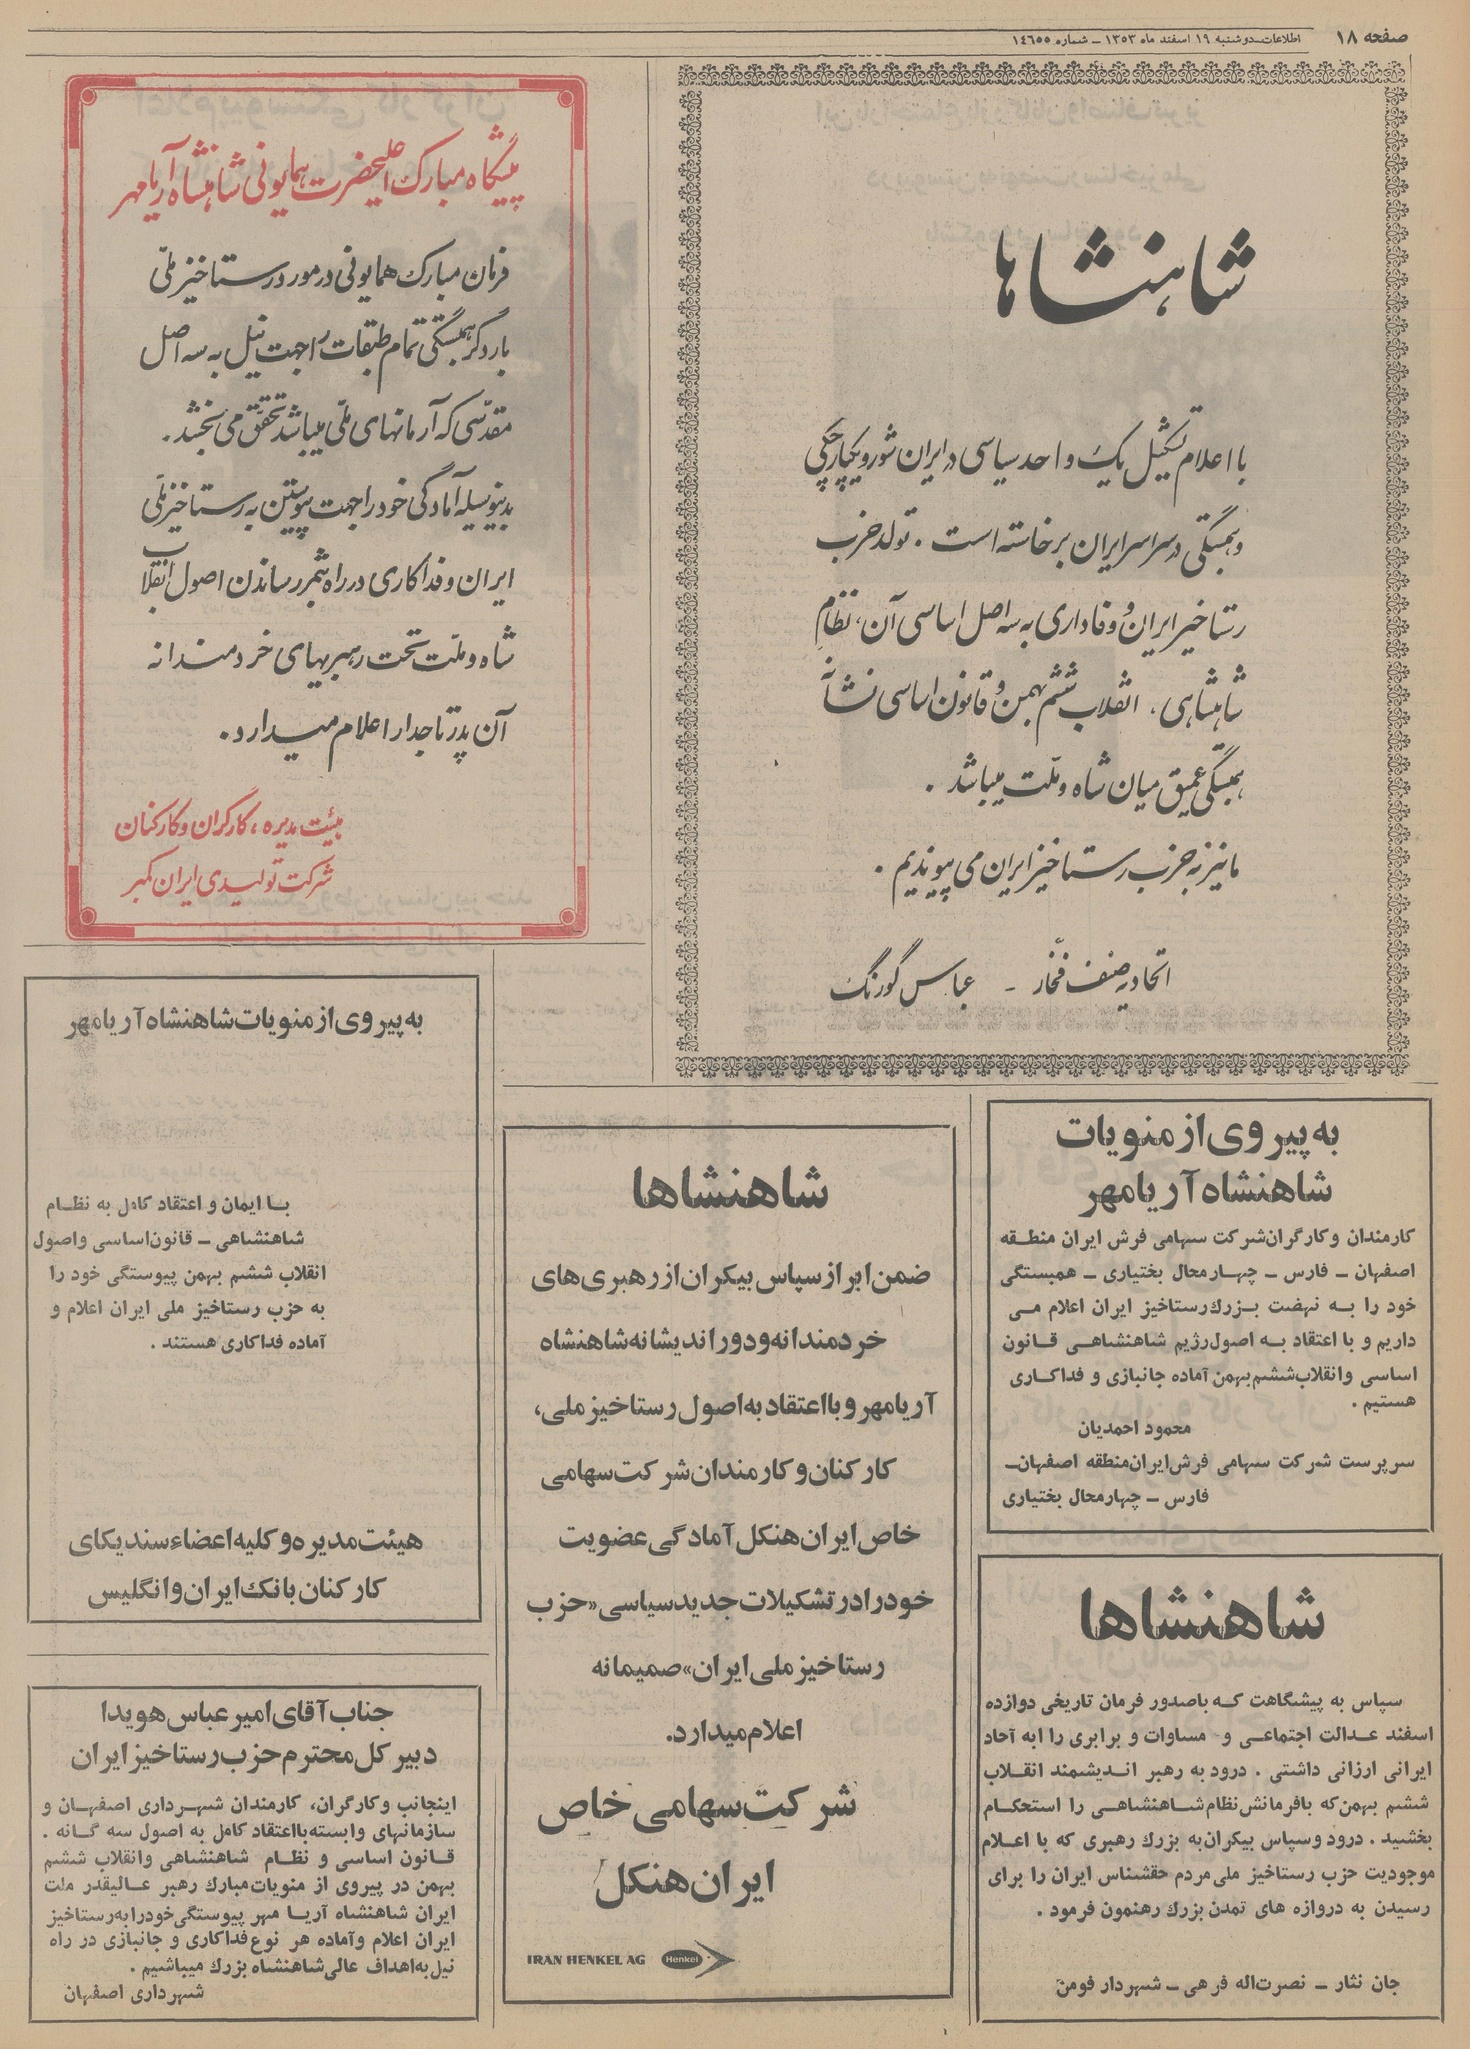 صفحه ۱۸
اطلاعات ــ دوشنبه ۱۹ اسفند ماه ۱۳۵۳ ــ شماره ۱۴۶۵۵
شاهنشاها
با اعلام تشکیل یک واحد سیاسی در ایران شور و یکپارچگی
و همبستگی در سراسر ایران برخاسته است . تولد حزب
رستاخیز ایران و وفاداری به سه اصل اساسی آن، نظام
شاهنشاهی، انقلاب ششم بهمن و قانون اساسی نشانه
همبستگی عمیق میان شاه و ملت میباشد .
ما نیز به حزب رستاخیز ایران می پیوندیم .
اتحادیه صنف فخار - عباس گورنگ
پیشگاه مبارک اعلیحضرت همایونی شاهنشاه آریامهر
فرمان مبارک همایونی در مورد رستاخیز ملّی
بار دگر همبستگی تمام طبقات را جهت نیل به سه اصل
مقدّسی که آرمانهای ملّی میباشد تحقّق می بخشد .
بدینوسیله آمادگی خود را جهت پیوستن به رستاخیز ملّی
ایران و فداکاری در راه بثمر رساندن اصول انقلاب
شاه و ملّت تحت رهبریهای خردمندانه
آن پدر تاجدار اعلام میدارد .
هیئت مدیره ، کارگران و کارکنان
شرکت تولیدی ایران کمبر
به پیروی از منویات
شاهنشاه آریامهر
کارمندان و کارگران شرکت سهامی فرش ایران منطقه
اصفهان ــ فارس ــ چهارمحال بختیاری ــ همبستگی
خود را به نهضت بزرك رستاخیز ایران اعلام می
داریم و با اعتقاد به اصول رژیم شاهنشاهی قانون
اساسی و انقلاب ششم بهمن آماده جانبازی و فداکاری
هستیم .
محمود احمدیان
سرپرست شرکت سهامی فرش ایران منطقه اصفهان ــ
فارس ــ چهارمحال بختیاری
شاهنشاها
سپاس به پیشگاهت که باصدور فرمان تاریخی دوازده
اسفند عدالت اجتماعی و مساوات و برابری را به آحاد
ایرانی ارزانی داشتی . درود به رهبر اندیشمند انقلاب
ششم بهمن که بافرمانش نظام شاهنشاهی را استحکام
بخشید . درود وسپاس بیکران به بزرك رهبری که با اعلام
موجودیت حزب رستاخیز ملی مردم حقشناس ایران را برای
رسیدن به دروازه های تمدن بزرك رهنمون فرمود .
جان نثار ــ نصرت‌اله فرهی ــ شهردار فومن
شاهنشاها
ضمن ابراز سپاس بیکران از رهبری های
خردمندانه و دوراندیشانه شاهنشاه
آریامهر و با اعتقاد به اصول رستاخیز ملی،
کارکنان و کارمندان شرکت سهامی
خاص ایران هنکل آمادگی عضویت
خود را در تشکیلات جدید سیاسی «حزب
رستاخیز ملی ایران» صمیمانه
اعلام میدارد.
شرکت سهامی خاص
ایران هنکل
IRAN HENKEL AG Henkel
به پیروی از منویات شاهنشاه آریامهر
با ایمان و اعتقاد کامل به نظام
شاهنشاهی ــ قانون اساسی و اصول
انقلاب ششم بهمن پیوستگی خود را
به حزب رستاخیز ملی ایران اعلام و
آماده فداکاری هستند .
هیئت مدیره و کلیه اعضاء سندیکای
کارکنان بانك ایران و انگلیس
جناب آقای امیر عباس هویدا
دبیر کل محترم حزب رستاخیز ایران
اینجانب و کارگران، کارمندان شهرداری اصفهان و
سازمانهای وابسته بااعتقاد کامل به اصول سه گانه .
قانون اساسی و نظام شاهنشاهی و انقلاب ششم
بهمن در پیروی از منویات مبارك رهبر عالیقدر ملت
ایران شاهنشاه آریا مهر پیوستگی خود را به رستاخیز
ایران اعلام و آماده هر نوع فداکاری و جانبازی در راه
نیل به اهداف عالی شاهنشاه بزرك میباشیم .
شهرداری اصفهان